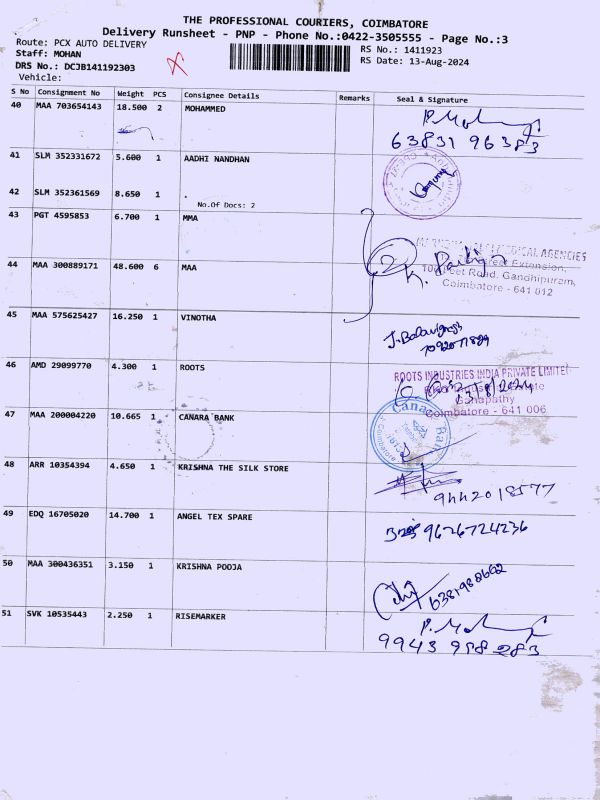 THE PROFESSIONAL COURIERS, COIMBATORE
Delivery Runsheet - PNP - Phone No.:0422-3505555 - Page No.:3
Route: PCX AUTO DELIVERY
RS No.: 1411923
Staff: MOHAN
RS Date: 13-Aug-2024
DRS No.: DCJB141192303
Vehicle:
S No Consignment No Weight PCS Consignee Details Remarks Seal & Signature
40 MAA 703654143 18.500 2 MOHAMMED
P. Moh
63831 96383
41 SLM 352331672 5.600 1 AADHI NANDHAN
42 SLM 352361569 8.650 1 .
No.Of Docs: 2
43 PGT 4595853 6.700 1 MMA
AGENCIES
Extension,
100 Feet Road, Gandhipuram,
Coimbatore - 641 012
44 MAA 300889171 48.600 6 MAA
45 MAA 575625427 16.250 1 VINOTHA
46 AMD 29099770 4.300 1 ROOTS
ROOTS INDUSTRIES INDIA PRIVATE LIMITED
Ganapathy
Coimbatore - 641 006
47 MAA 200004220 10.665 1 CANARA BANK
Canara Bank
Coimbatore
48 ARR 10354394 4.650 1 KRISHNA THE SILK STORE
9442018577
49 EDQ 16705020 14.700 1 ANGEL TEX SPARE
9626724236
50 MAA 300436351 3.150 1 KRISHNA POOJA
6381980662
51 SVK 10535443 2.250 1 RISEMARKER
P. Moh
9943 988 283